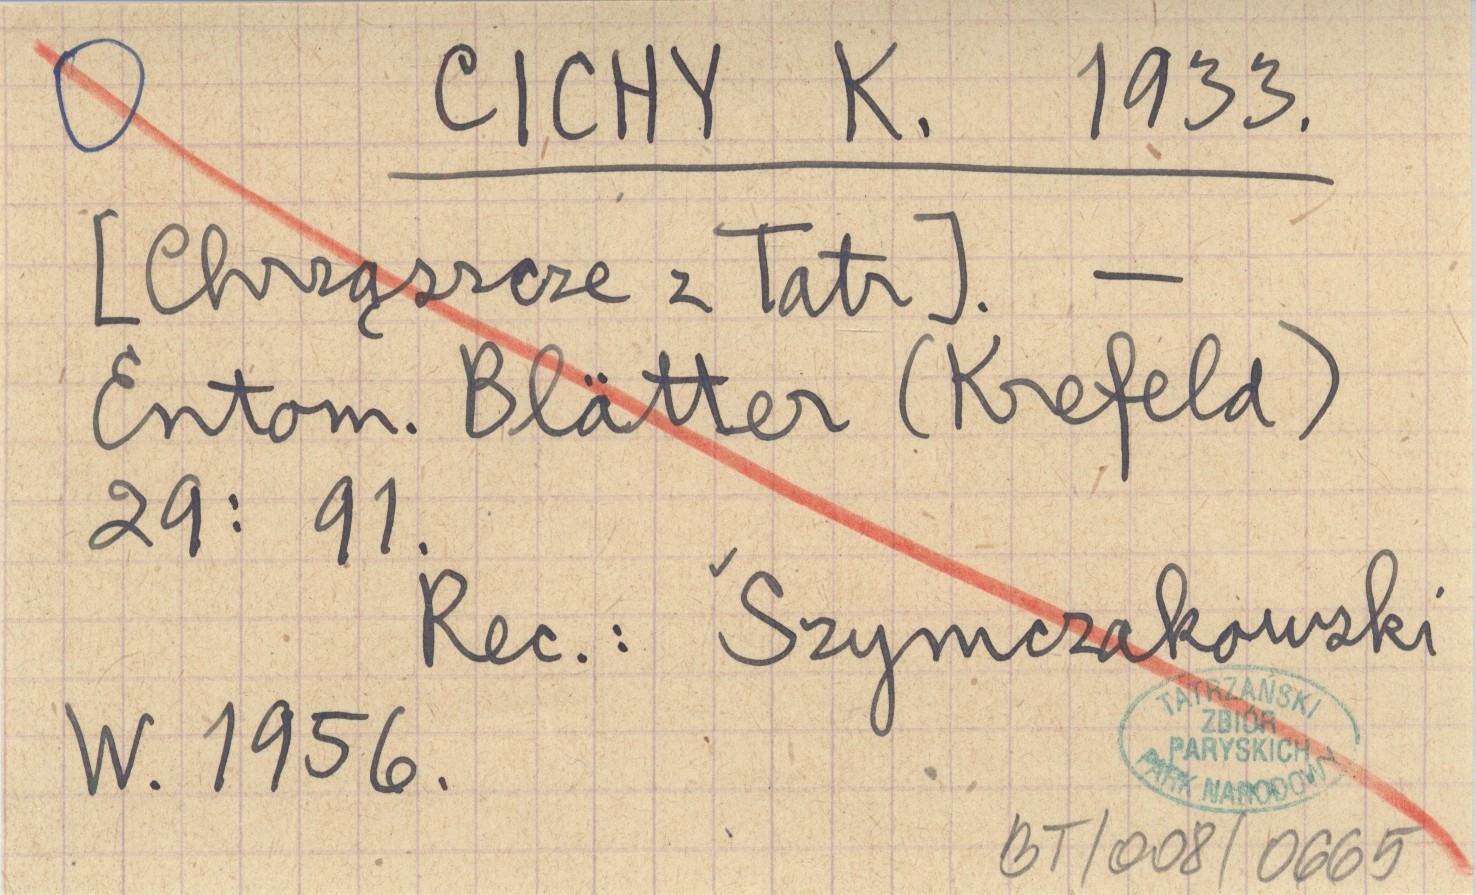 CICHY K. 1933.
[Chrząszcze z Tatr]. —
Entom. Blätter (Krefeld)
29: 91.
Rec.: Szymczakowski
W. 1956.
TATRZAŃSKI
ZBIÓR
PARYSKICH
PARK NARODOWY
BT/008/0665